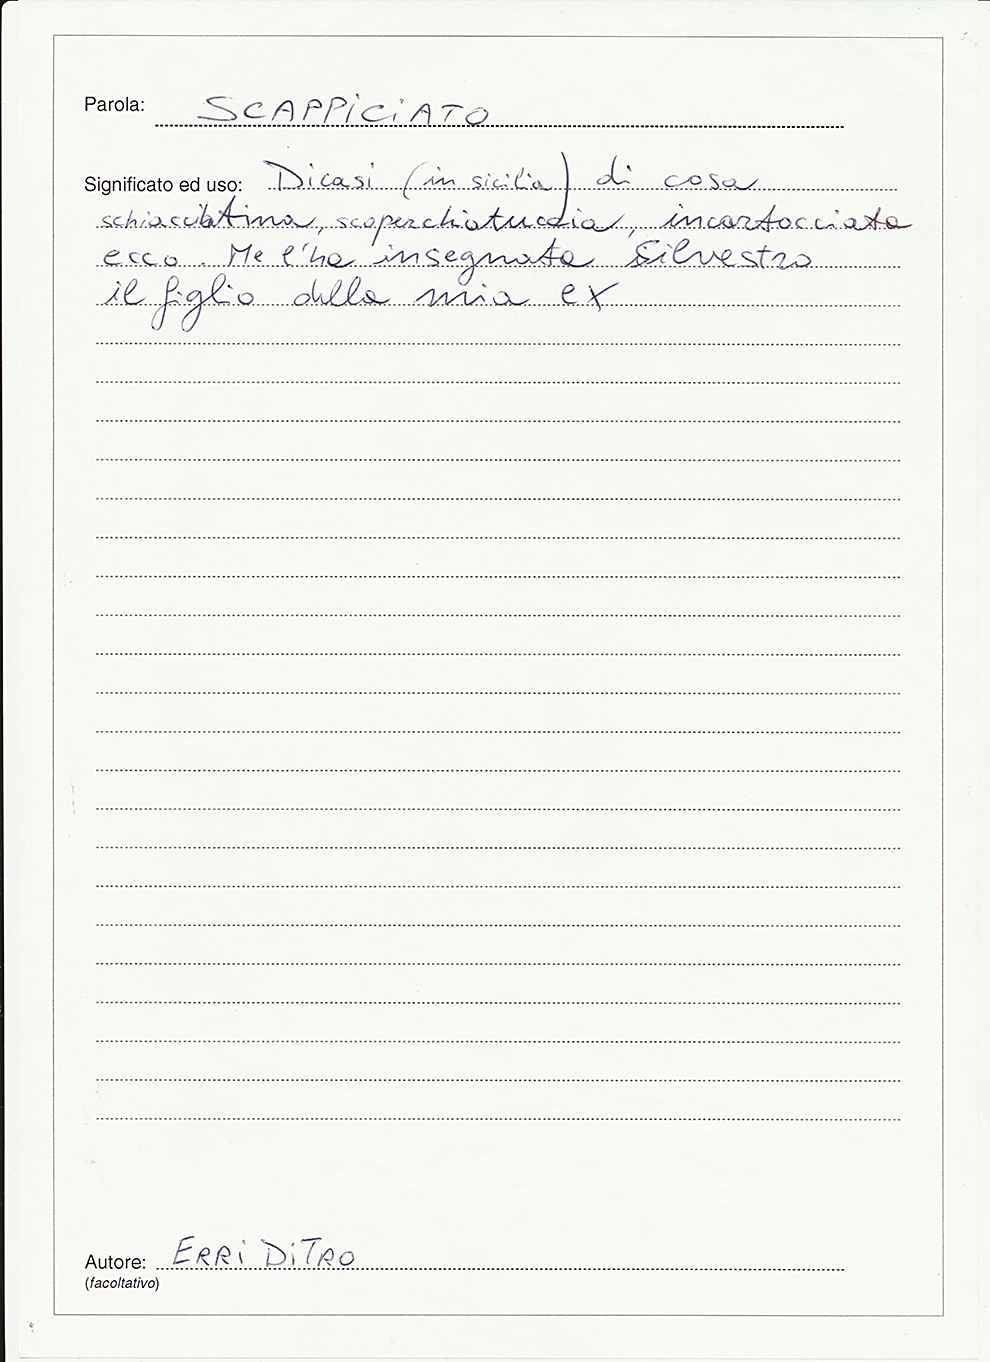 Parola: SCAPPICIATO
Significato ed uso: Dicasi (in sicilia) di cosa
schiacciatina, scoperchiatuccia, incartocciata
ecco. Me l'ha insegnata Silvestro
il figlio della mia ex
Autore: ERRI DITRO
(facoltativo)